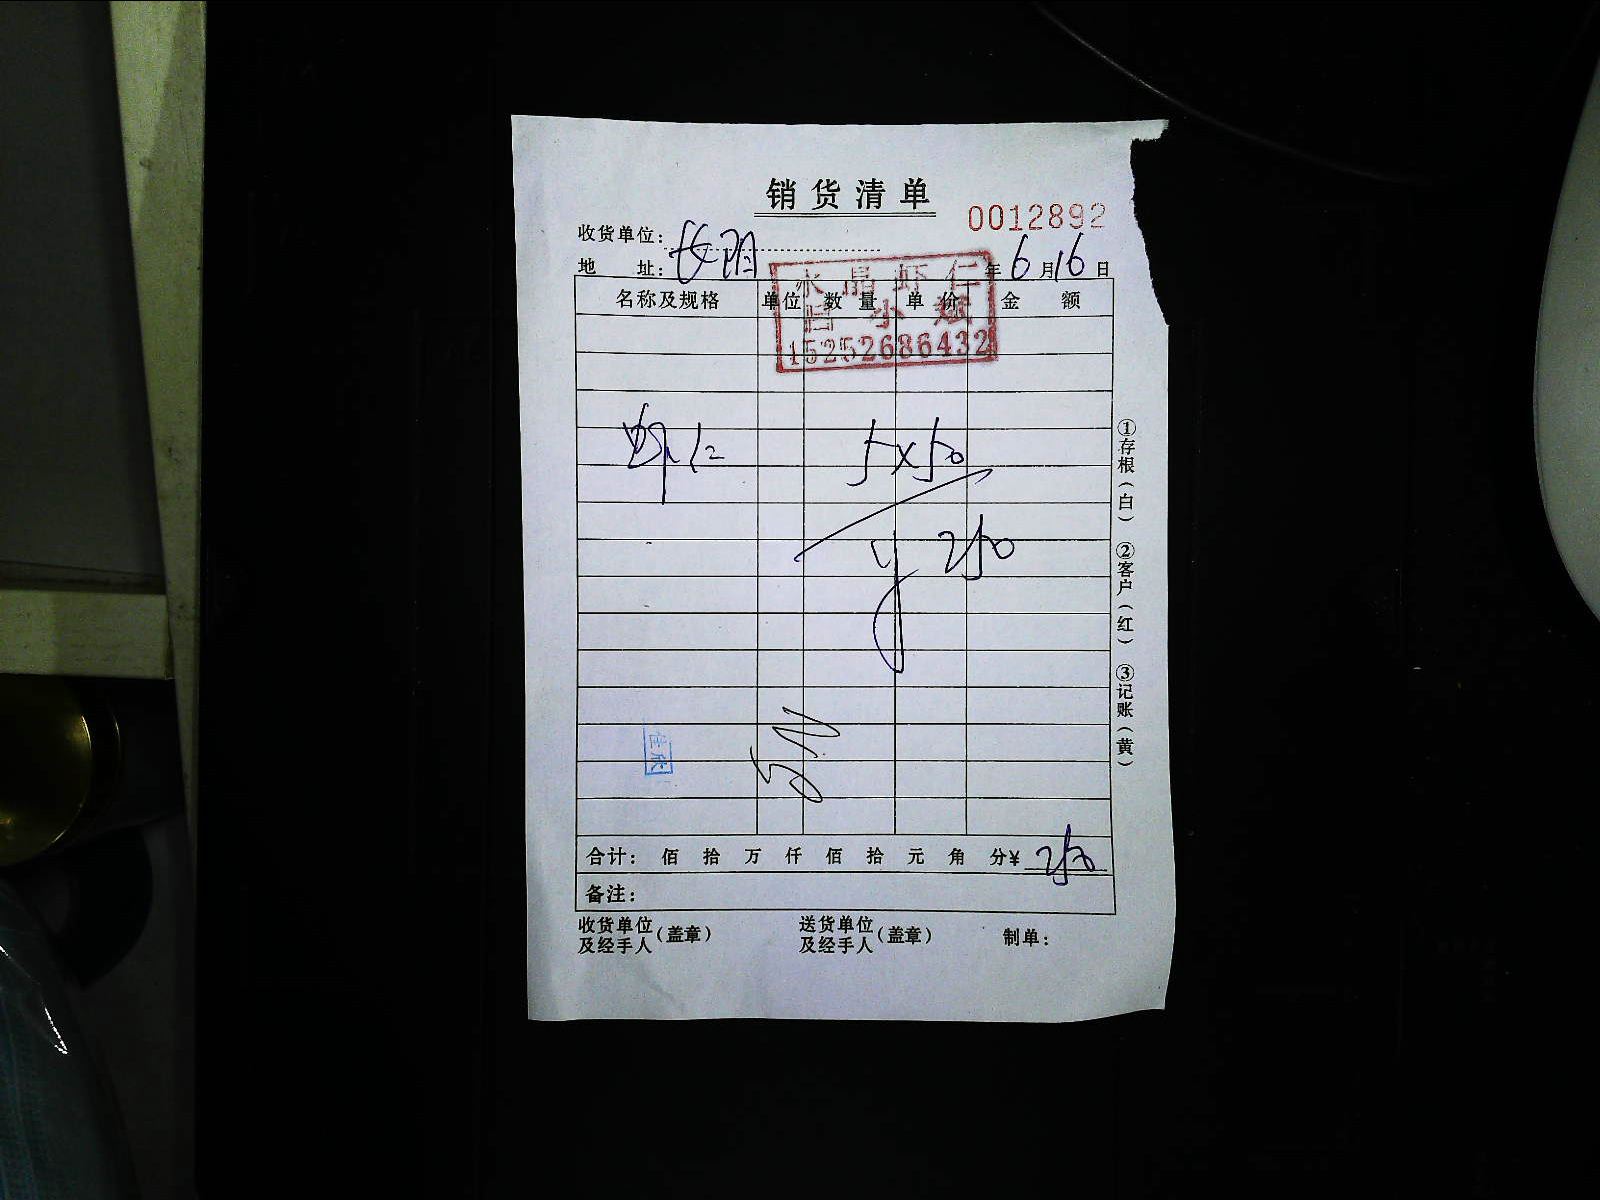 销货清单
0012892
收货单位:
地 址: 长阳 年 6 月 16 日
水晶虾仁
吕小斌
15252686432
名称及规格 单位 数量 单价 金额
虾仁 5×50
¥ 250
佳欣
合计: 佰 拾 万 仟 佰 拾 元 角 分 ¥ 250
备注:
收货单位及经手人(盖章) 送货单位及经手人(盖章) 制单:
①存根(白) ②客户(红) ③记账(黄)